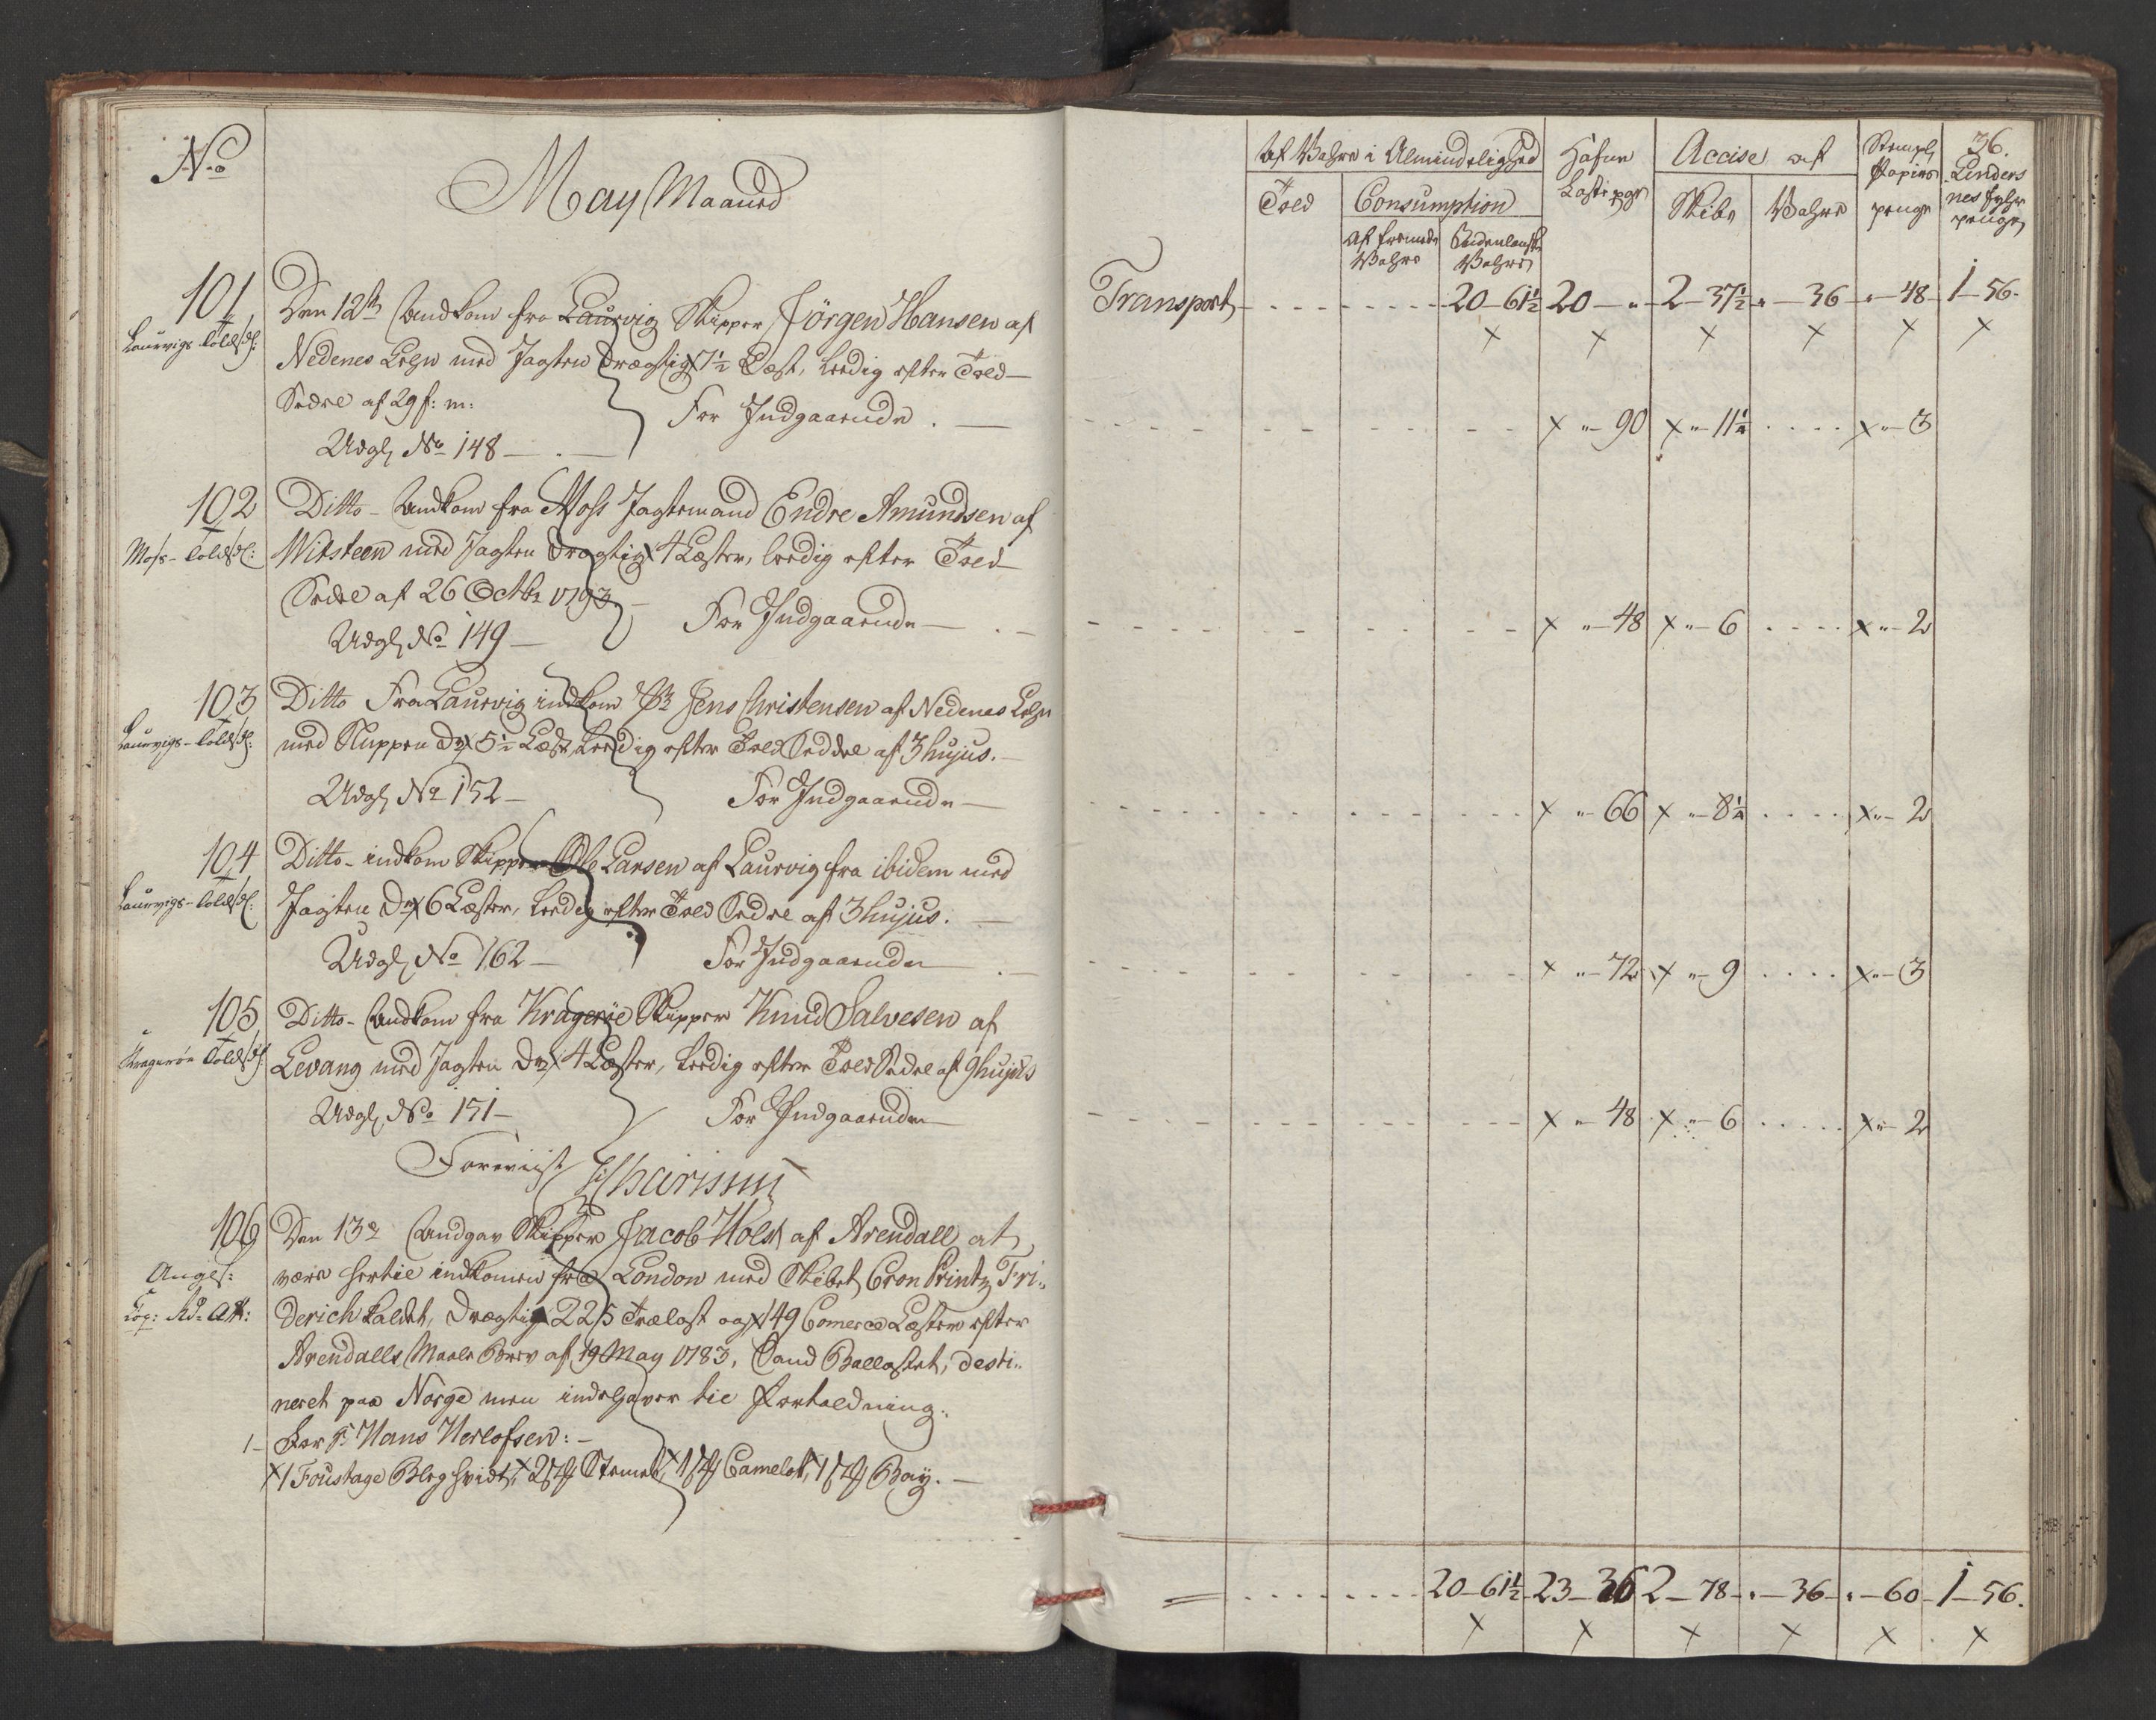 No
May Maaned
101
Laurvigs Toldsdl:
Den 12te Indkom fra Laurvig Skipper Jörgen Hansen af
Nedenes Lehn med Jagten drægtig 7½ Læst, Leedig efter Told
Sedel af 29 f: m:
For Indgaaende
Udgl No 148
102
Moss Toldsdl:
Ditto Indkom fra Moss Jagtemand Endre Amundsen af
Witsteen med Jagten drægtig 4 Læster, leedig efter Told
Sedel af 26 Octbr 1793
For Indgaaende
Udgl No 149
103
Laurvigs Toldsdl:
Ditto Fra Laurvig indkom Skr Jens Christensen af Nedenes Lehn
med Sluppen dr 5½ Læst Leedig efter Told Seddel af 3 hujus.
Udgl No 152
For Indgaaende
104
Laurvigs Toldsdl:
Ditto indkom Skipper Ole Larsen af Laurvig fra ibidem med
Jagten dr 6 Læster, Leedig efter Told Sedel af 3 hujus.
Udgl No 162
For Indgaaende
105
Kragerøe Toldsdl:
Ditto Indkom fra Kragerøe Skipper Knud Salvesen af
Levang med Jagten dr 4 Læster, Leedig efter Told Sedel af 9 hujus
Udgl No 151
For Indgaaende
Foreviist
106
Angefl:
Den 13de Indgav Skipper Jacob Holst af Arendall at
være hertil indkomen fra London med Skibet Cron Printz Fri-
derich kaldet, drægtig 225 Trælast og 149 Comerce Læster efter
Arendalls Maale Brev af 19 May 1783, Sand Ballastet, desti-
neret paa Norge men indehaver til Fortoldning.
1 For Sr Hans Herlofsen:
1 Foustage Bleghvidt, 2 Stemet, 1 Camelot, 1 Bay.
36.
Af Vahre i Almindelighed
Told
Consumption
af fremde Vahre
Indenlandsk Vahre
Hafne Lastepge
Accise af
Skibe
Vahre
Stempl Papiirs penge
Lindersnes fyhr penge
Transport 20-61½ 20-" 2-37½ "-36 "-48 1-56.
x x x x x x
x "-90 x "-11¼ x "-3
x "-48 x "-6 x "-2
x "-66 x "-8¼ x "-2
x "-72 x "-9 x "-3
x "-48 x "-6 x "-2
20-61½ 23-36 2-78 "-36 "-60 1-56.
x x x x x x